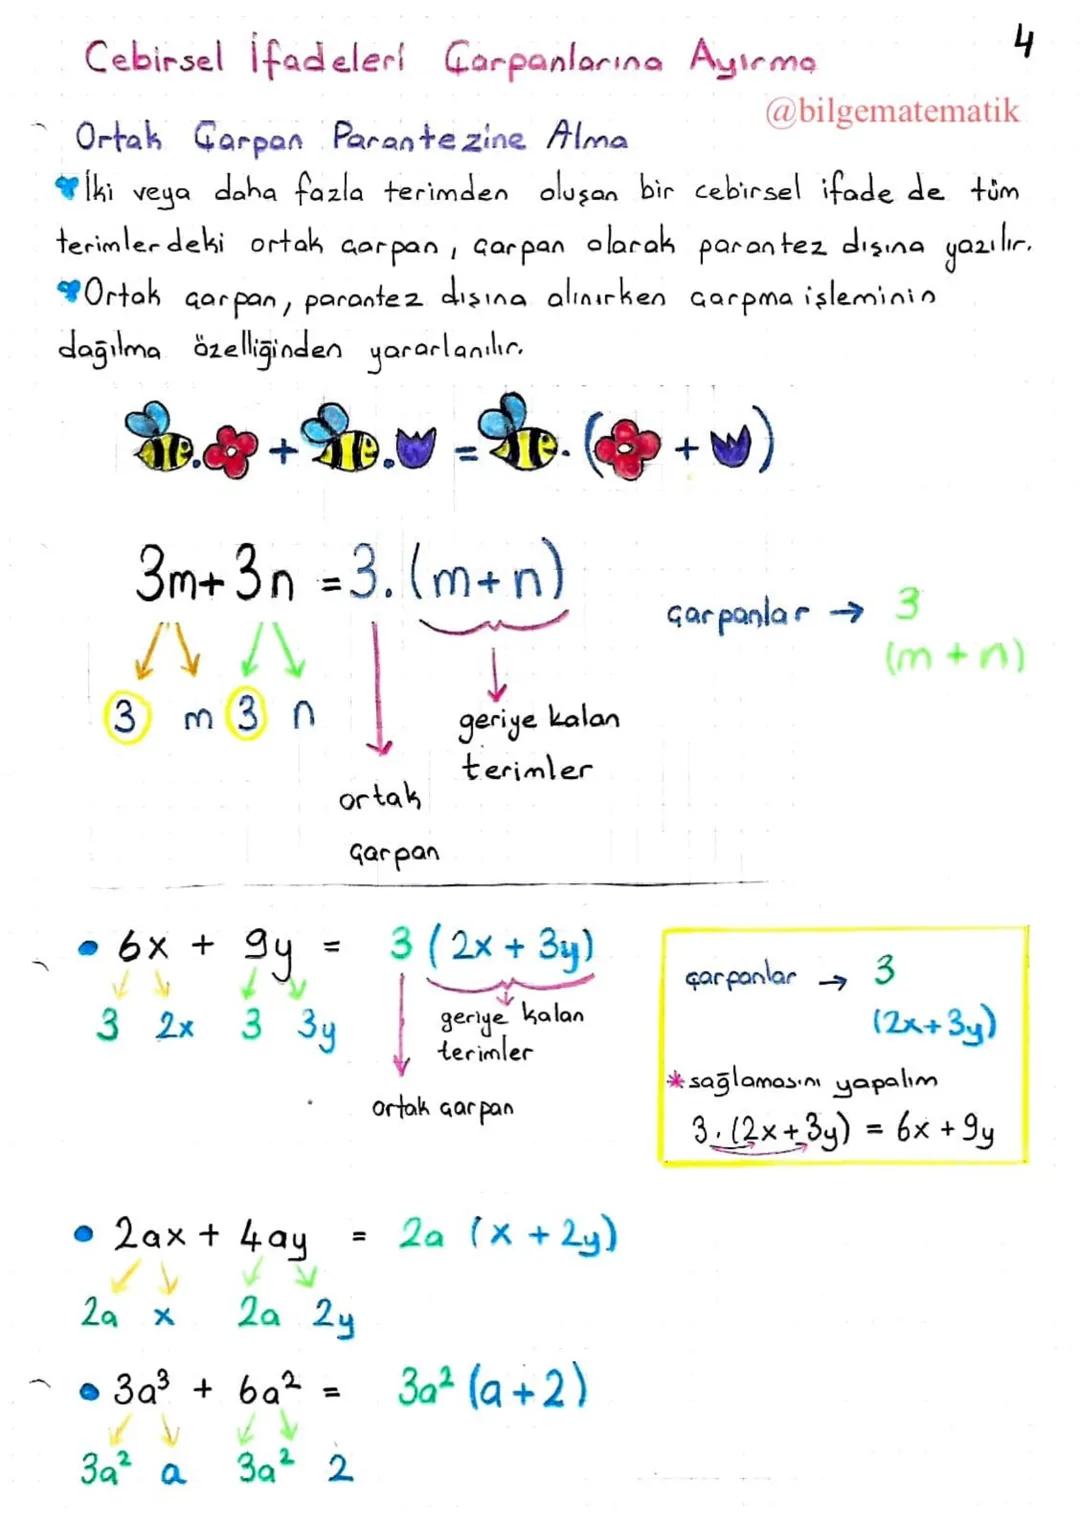 4
Cebirsel İfadeleri Çarpanlarına Ayırma
@bilgematematik
Ortak Çarpan Parantezine Alma
İki veya daha fazla terimden oluşan bir cebirsel ifade de tüm
terimlerdeki ortak çarpan, çarpan olarak parantez dışına yazılır.
Ortak çarpan, parantez dışına alınırken çarpma işleminin
dağılma özelliğinden yararlanılır.
. + . = . ( + )
3m+3n = 3.(m+n)
çarpanlar → 3
(m+n)
3 m 3 n
geriye kalan
terimler
ortak
çarpan
• 6x + 9y = 3(2x + 3y)
3 2x 3 3y
geriye kalan
terimler
ortak çarpan
çarpanlar → 3
(2x+3y)
*sağlamasını yapalım
3.(2x+3y) = 6x+9y
• 2ax + 4ay = 2a (x + 2y)
2a x 2a 2y
• 3a³ + 6a² = 3a² (a+2)
3a² a 3a² 2